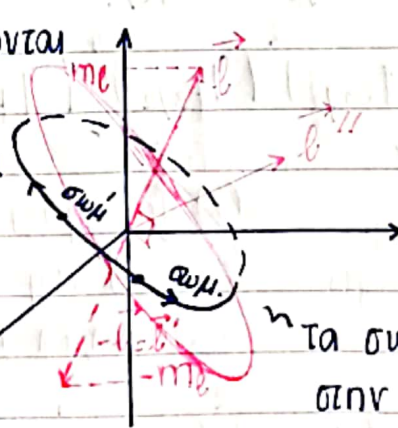 νται
mℓ
ℓ
ℓ''
σωμ'
σωμ.
-ℓ=ℓ'
-mℓ
" τα συ
στην